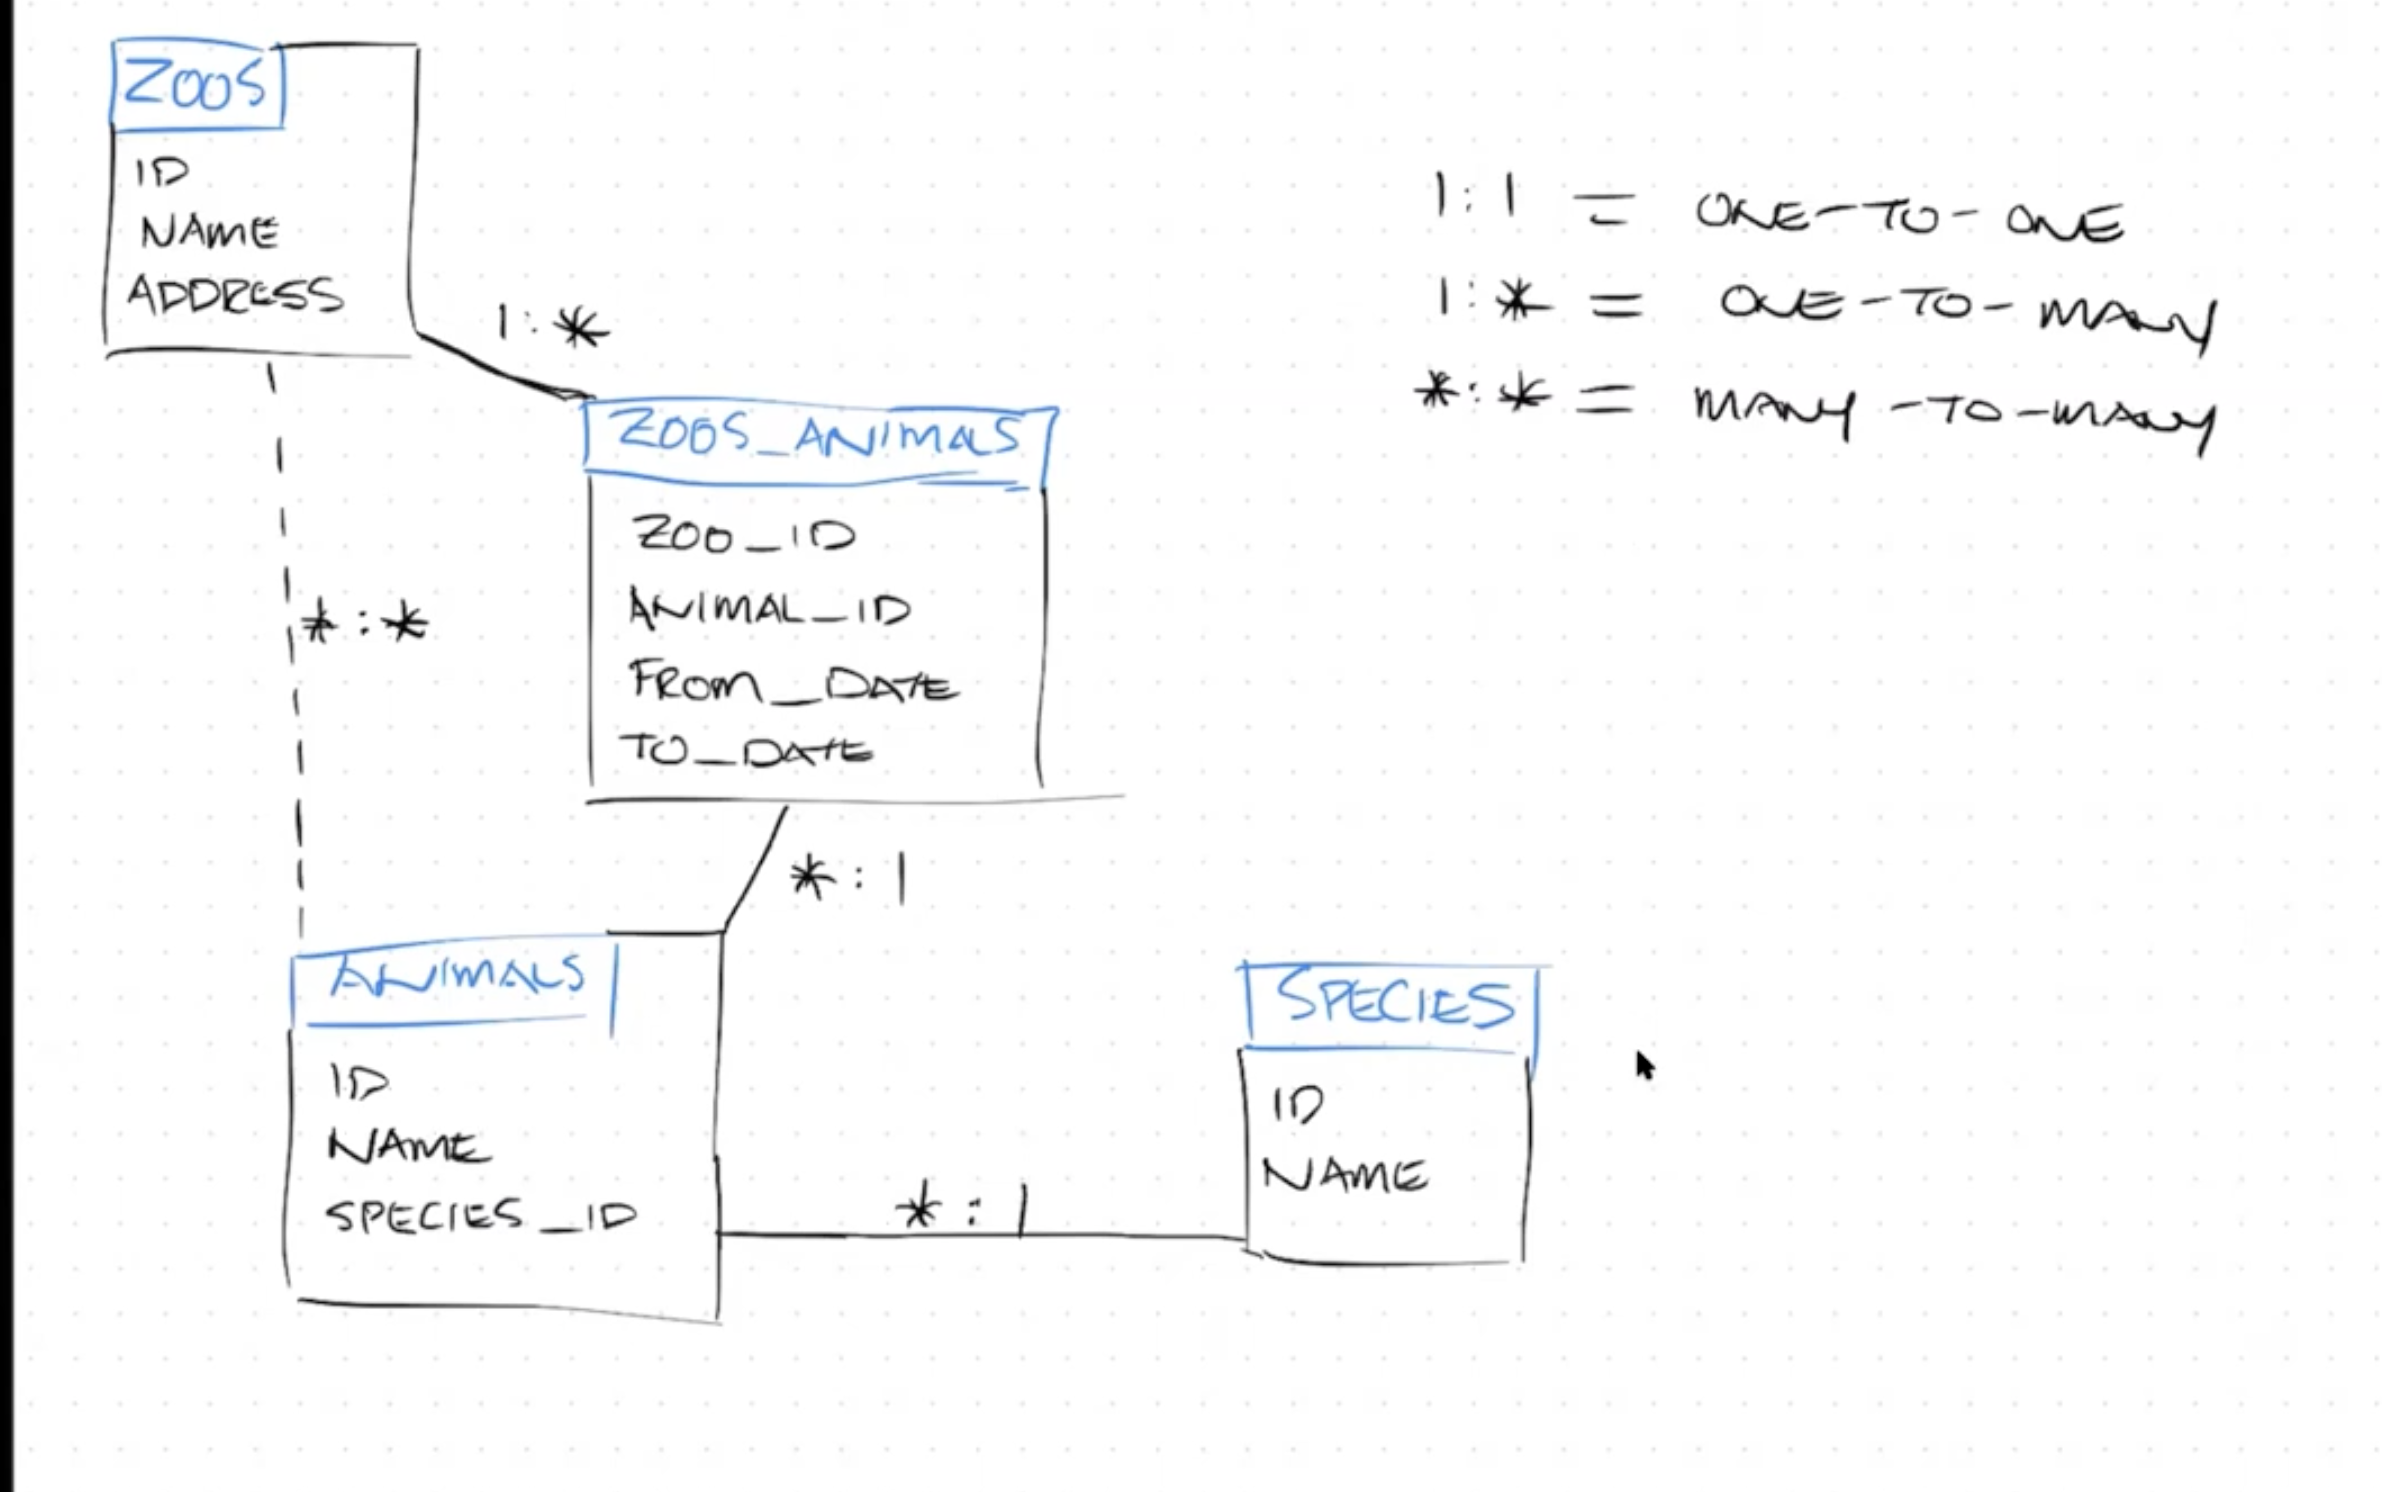 ZOOS
ID
NAME
ADDRESS
1:*
*:*
ZOOS_ANIMALS
ZOO_ID
ANIMAL_ID
FROM_DATE
TO_DATE
*:1
ANIMALS
ID
NAME
SPECIES_ID
*:1
SPECIES
ID
NAME
1:1 = ONE-TO-ONE
1:* = ONE-TO-MANY
*:* = MANY-TO-MANY